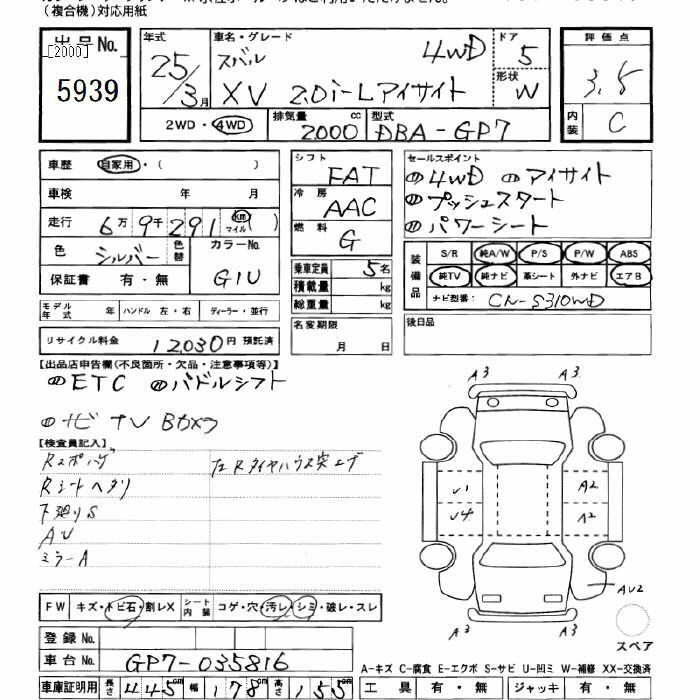 (複合機)対応用紙
出品No.
[2000]
5939
年式
25/3月
車名・グレード
スバル 4WD
XV 2.0i-Lアイサイト
ドア
5
形状
W
評価点
3.5
内装
C
2WD・4WD
排気量
2000 cc
型式
DBA-GP7
車歴 自家用・( )
車検 年 月
走行 6万9千291 km マイル ( )
色 シルバー 色替
カラーNo.
G1U
保証書 有・無
モデル年式 年 ハンドル 左・右 ディーラー・並行
リサイクル料金 12030円 預託済
シフト
FAT
冷房
AAC
燃料
G
乗車定員 5名
積載量 kg
総重量 kg
名変期限
月 日
セールスポイント
4WD アイサイト
プッシュスタート
パワーシート
装備品
S/R 純A/W P/S P/W ABS
純TV 純ナビ 革シート 外ナビ エアB
ナビ型番: CN-S310WD
後日品
【出品店申告欄(不良箇所・欠品・注意事項等)】
ETC パドルシフト
ナビ TV Bカメラ
【検査員記入】
Rシートヘタリ
左Rタイヤハウス突上げ
下廻りS
AU
ミラーA
FW キズ・トビ石・割レX シート内装 コゲ・穴・汚レ・シミ・破レ・スレ
登録No.
車台No. GP7-035816
車庫証明用 長さ 445cm 幅 178cm 高さ 155cm
A3 A3
U1 A2
U4 A2
AU2
A3 A3
スペア
A-キズ C-腐食 E-エクボ S-サビ U-凹ミ W-補修 XX-交換済
工具 有・無 ジャッキ 有・無